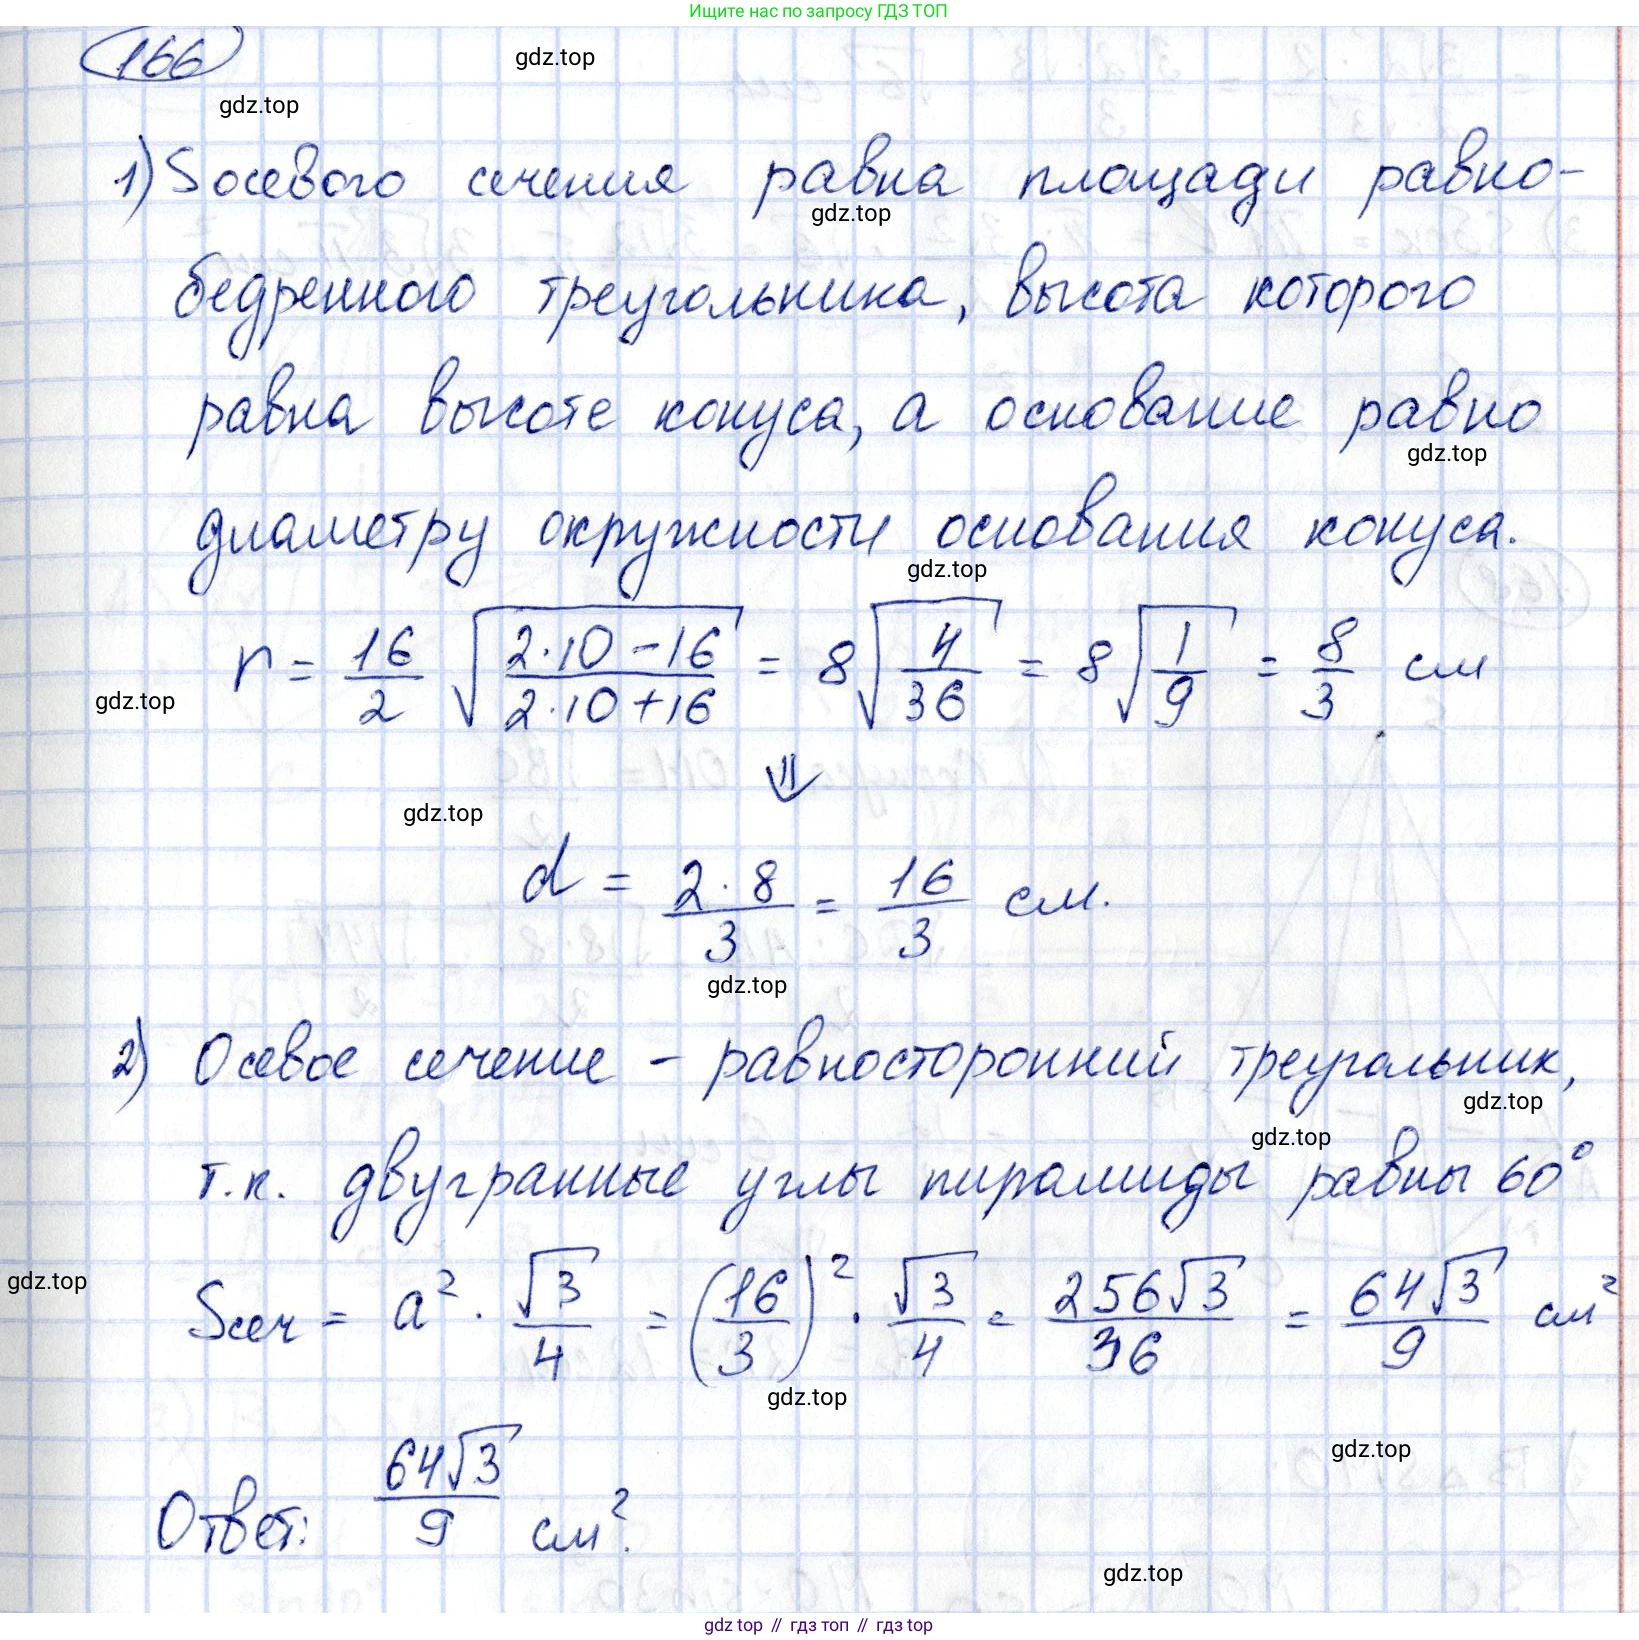 Ищите нас по запросу ГДЗ ТОП
166
gdz.top
gdz.top
1) Sосевого сечения равна площади равно-
gdz.top
бедренного треугольника, высота которого
равна высоте конуса, а основание равно
gdz.top
диаметру окружности основания конуса.
gdz.top
r = 16/2 √((2·10−16)/(2·10+16)) = 8√(4/36) = 8√(1/9) = 8/3 см
gdz.top
⇓
gdz.top
d = (2·8)/3 = 16/3 см.
gdz.top
2) Осевое сечение – равносторонний треугольник,
gdz.top
gdz.top
т.к. двугранные углы пирамиды равны 60°
gdz.top
Sсеч = a² · √3/4 = (16/3)² · √3/4 = 256√3/36 = 64√3/9 см²
gdz.top
gdz.top
Ответ: 64√3/9 см².
gdz.top
gdz top // гдз топ // гдз top